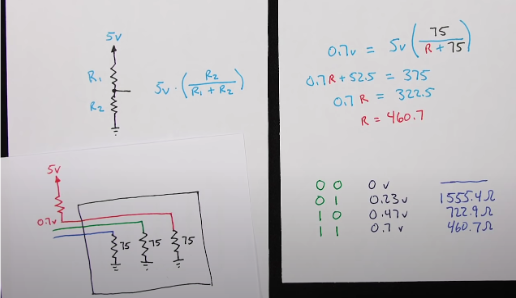 5v
R1
R2
5v · ( R2 / R1 + R2 )
5v
0.7v
75 75 75
0.7v = 5v ( 75 / R + 75 )
0.7R + 52.5 = 375
0.7R = 322.5
R = 460.7
0 0 0v
0 1 0.23v 1555.4Ω
1 0 0.47v 722.9Ω
1 1 0.7v 460.7Ω